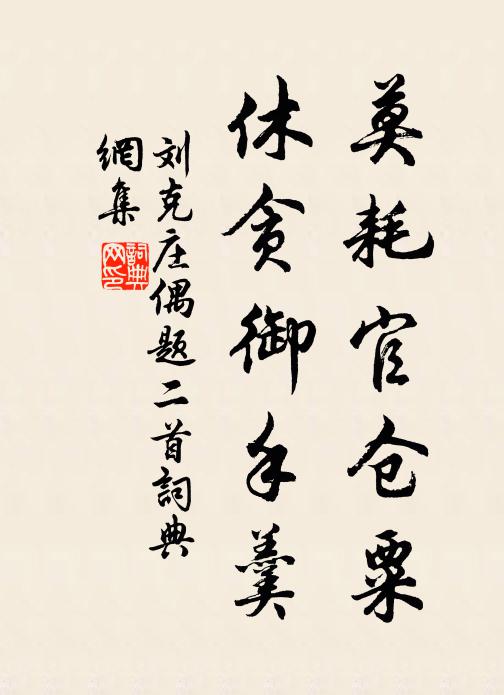 莫耗官仓粟
休贪御手羹
刘克庄偶题二首詞典
網集
詞典
网印